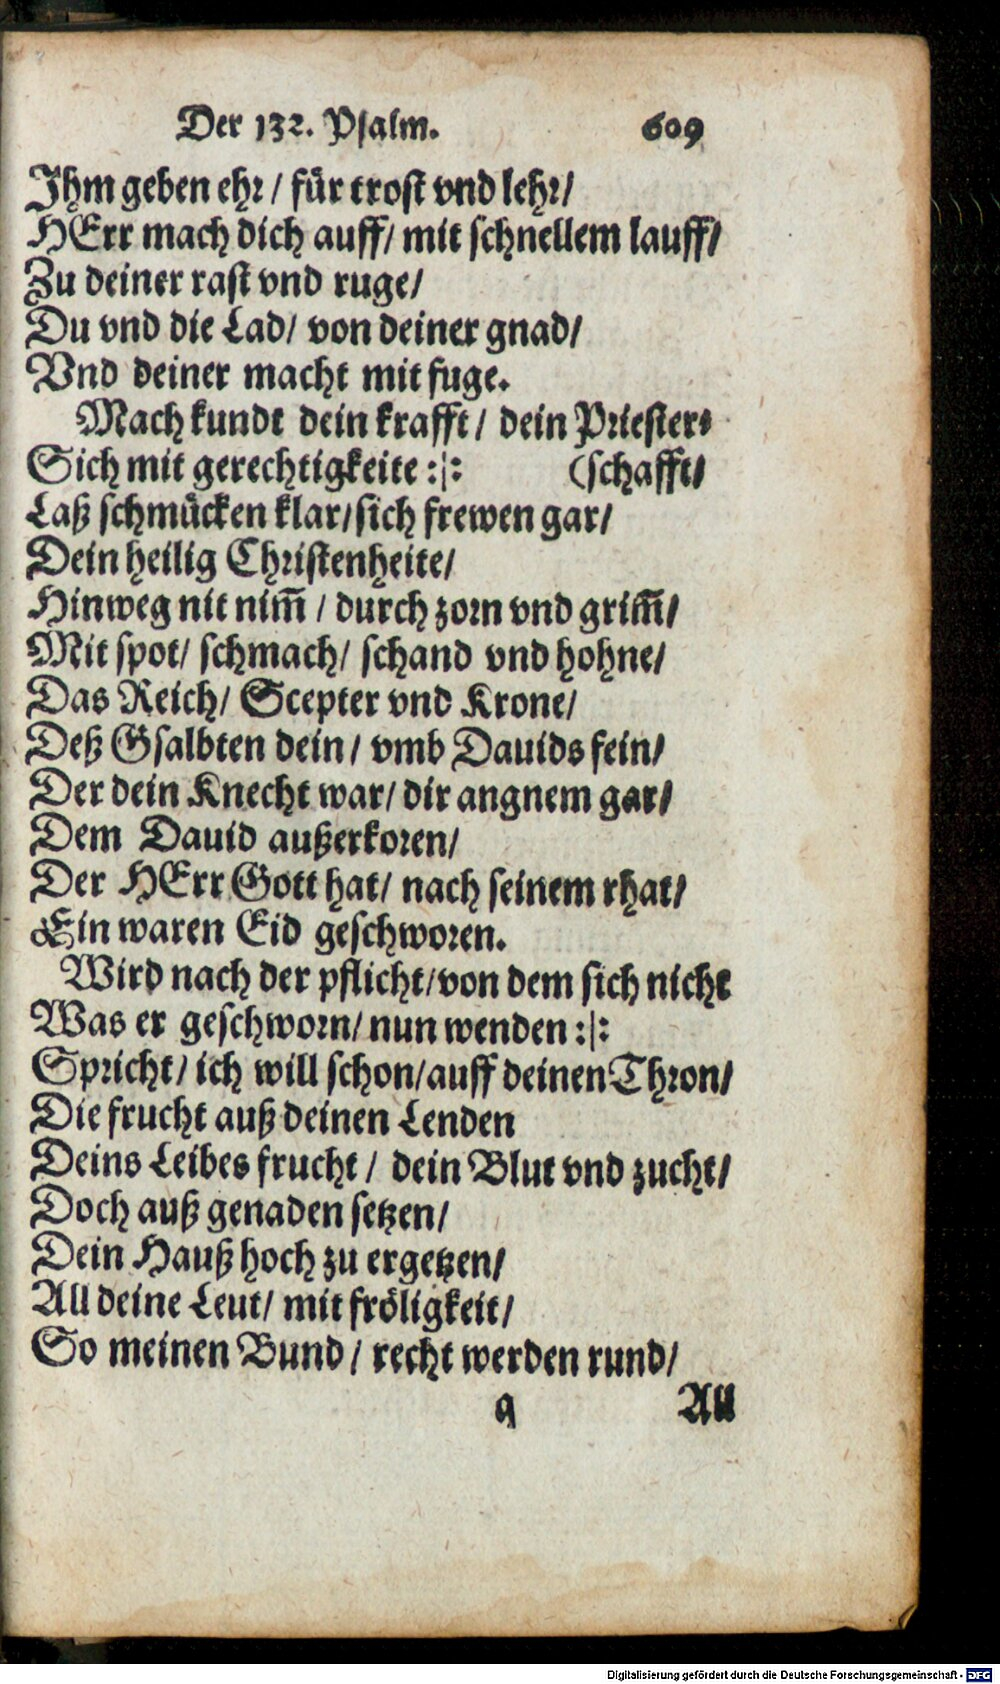 Der 132. Psalm. 609
Ihm geben ehr / für trost vnd lehr/
HErr mach dich auff/ mit schnellem lauff/
Zu deiner rast vnd ruge/
Du vnd die Lad/ von deiner gnad/
Vnd deiner macht mit fuge.
Mach kundt dein krafft / dein Priester-
Sich mit gerechtigkeite :|: (schafft/
Laß schmücken klar/ sich frewen gar/
Dein heilig Christenheite/
Hinweg nit nim̄ / durch zorn vnd grim̄/
Mit spot/ schmach/ schand vnd hohne/
Das Reich/ Scepter vnd Krone/
Deß Gsalbten dein / vmb Dauids sein/
Der dein Knecht war/ dir angnem gar/
Dem Dauid außerkoren/
Der HErr Gott hat/ nach seinem rhat/
Ein waren Eid geschworen.
Wird nach der pflicht/ von dem sich nicht
Was er geschworn/ nun wenden :|:
Spricht/ ich will schon/ auff deinen Thron/
Die frucht auß deinen Lenden
Deins Leibes frucht / dein Blut vnd zucht/
Doch auß genaden setzen/
Dein Hauß hoch zu ergetzen/
All deine Leut/ mit fröligkeit/
So meinen Bund / recht werden rund/
q All
Digitalisierung gefördert durch die Deutsche Forschungsgemeinschaft - DFG